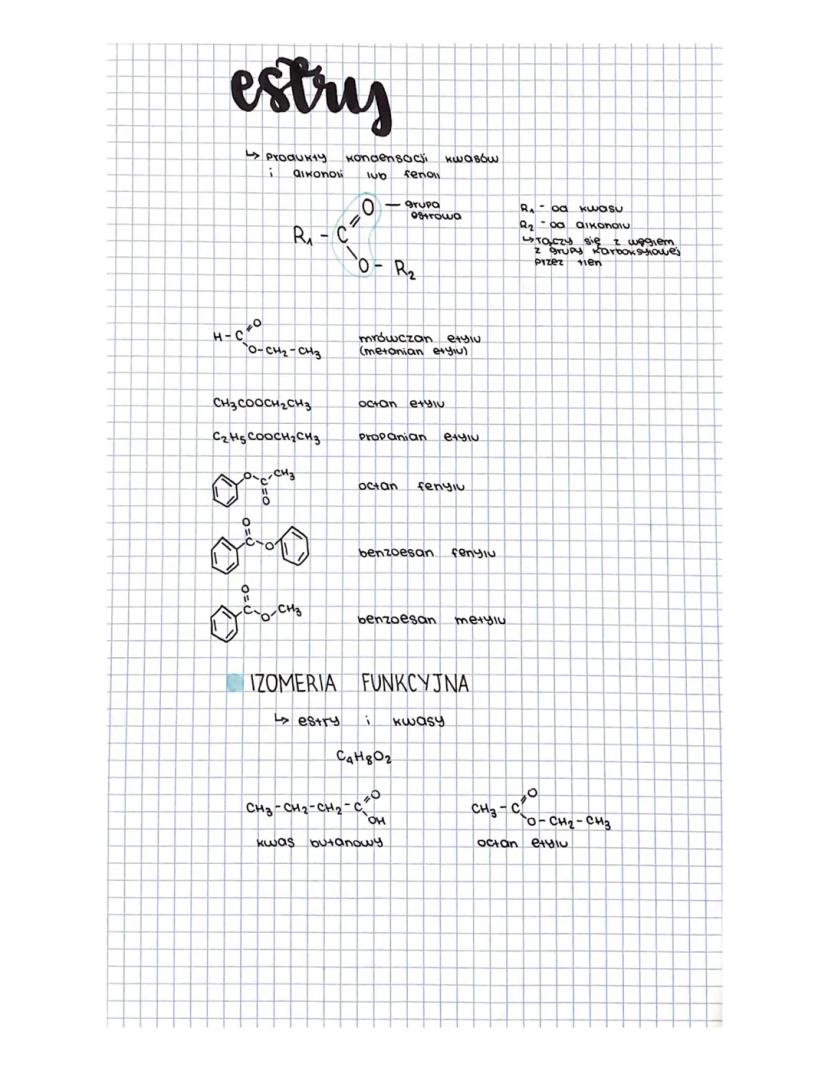 estry
↳ produkty kondensacji kwasów
i alkoholi lub fenoli
O — grupa
estrowa
R₁ - C
O - R₂
R₁ - od kwasu
R₂ - od alkoholu
↳ łączy się z węglem
z grupy karboksylowej
przez tlen
O
H - C
O - CH₂ - CH₃
mrówczan etylu
(metanian etylu)
CH₃COOCH₂CH₃ octan etylu
C₂H₅COOCH₂CH₃ propanian etylu
O C CH₃
O
octan fenylu
O
C O
benzoesan fenylu
O
C O CH₃
benzoesan metylu
IZOMERIA FUNKCYJNA
↳ estry i kwasy
C₄H₈O₂
O
CH₃ - CH₂ - CH₂ - C
OH
kwas butanowy
O
CH₃ - C
O - CH₂ - CH₃
octan etylu